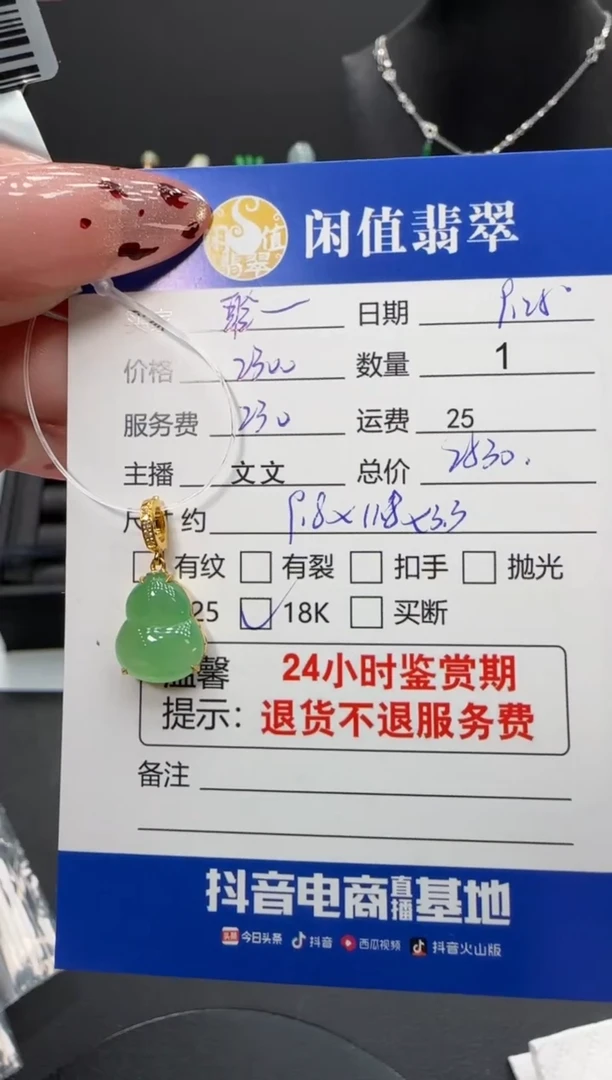 闲值翡翠
日期 9.28
价格 2300 数量 1
服务费 230 运费 25
主播 文文 总价 2830.
约 9.8×11.8×3.3
有纹 有裂 扣手 抛光
25 18K 买断
温馨 24小时鉴赏期
提示：退货不退服务费
备注
抖音电商直播基地
今日头条 抖音 西瓜视频 抖音火山版